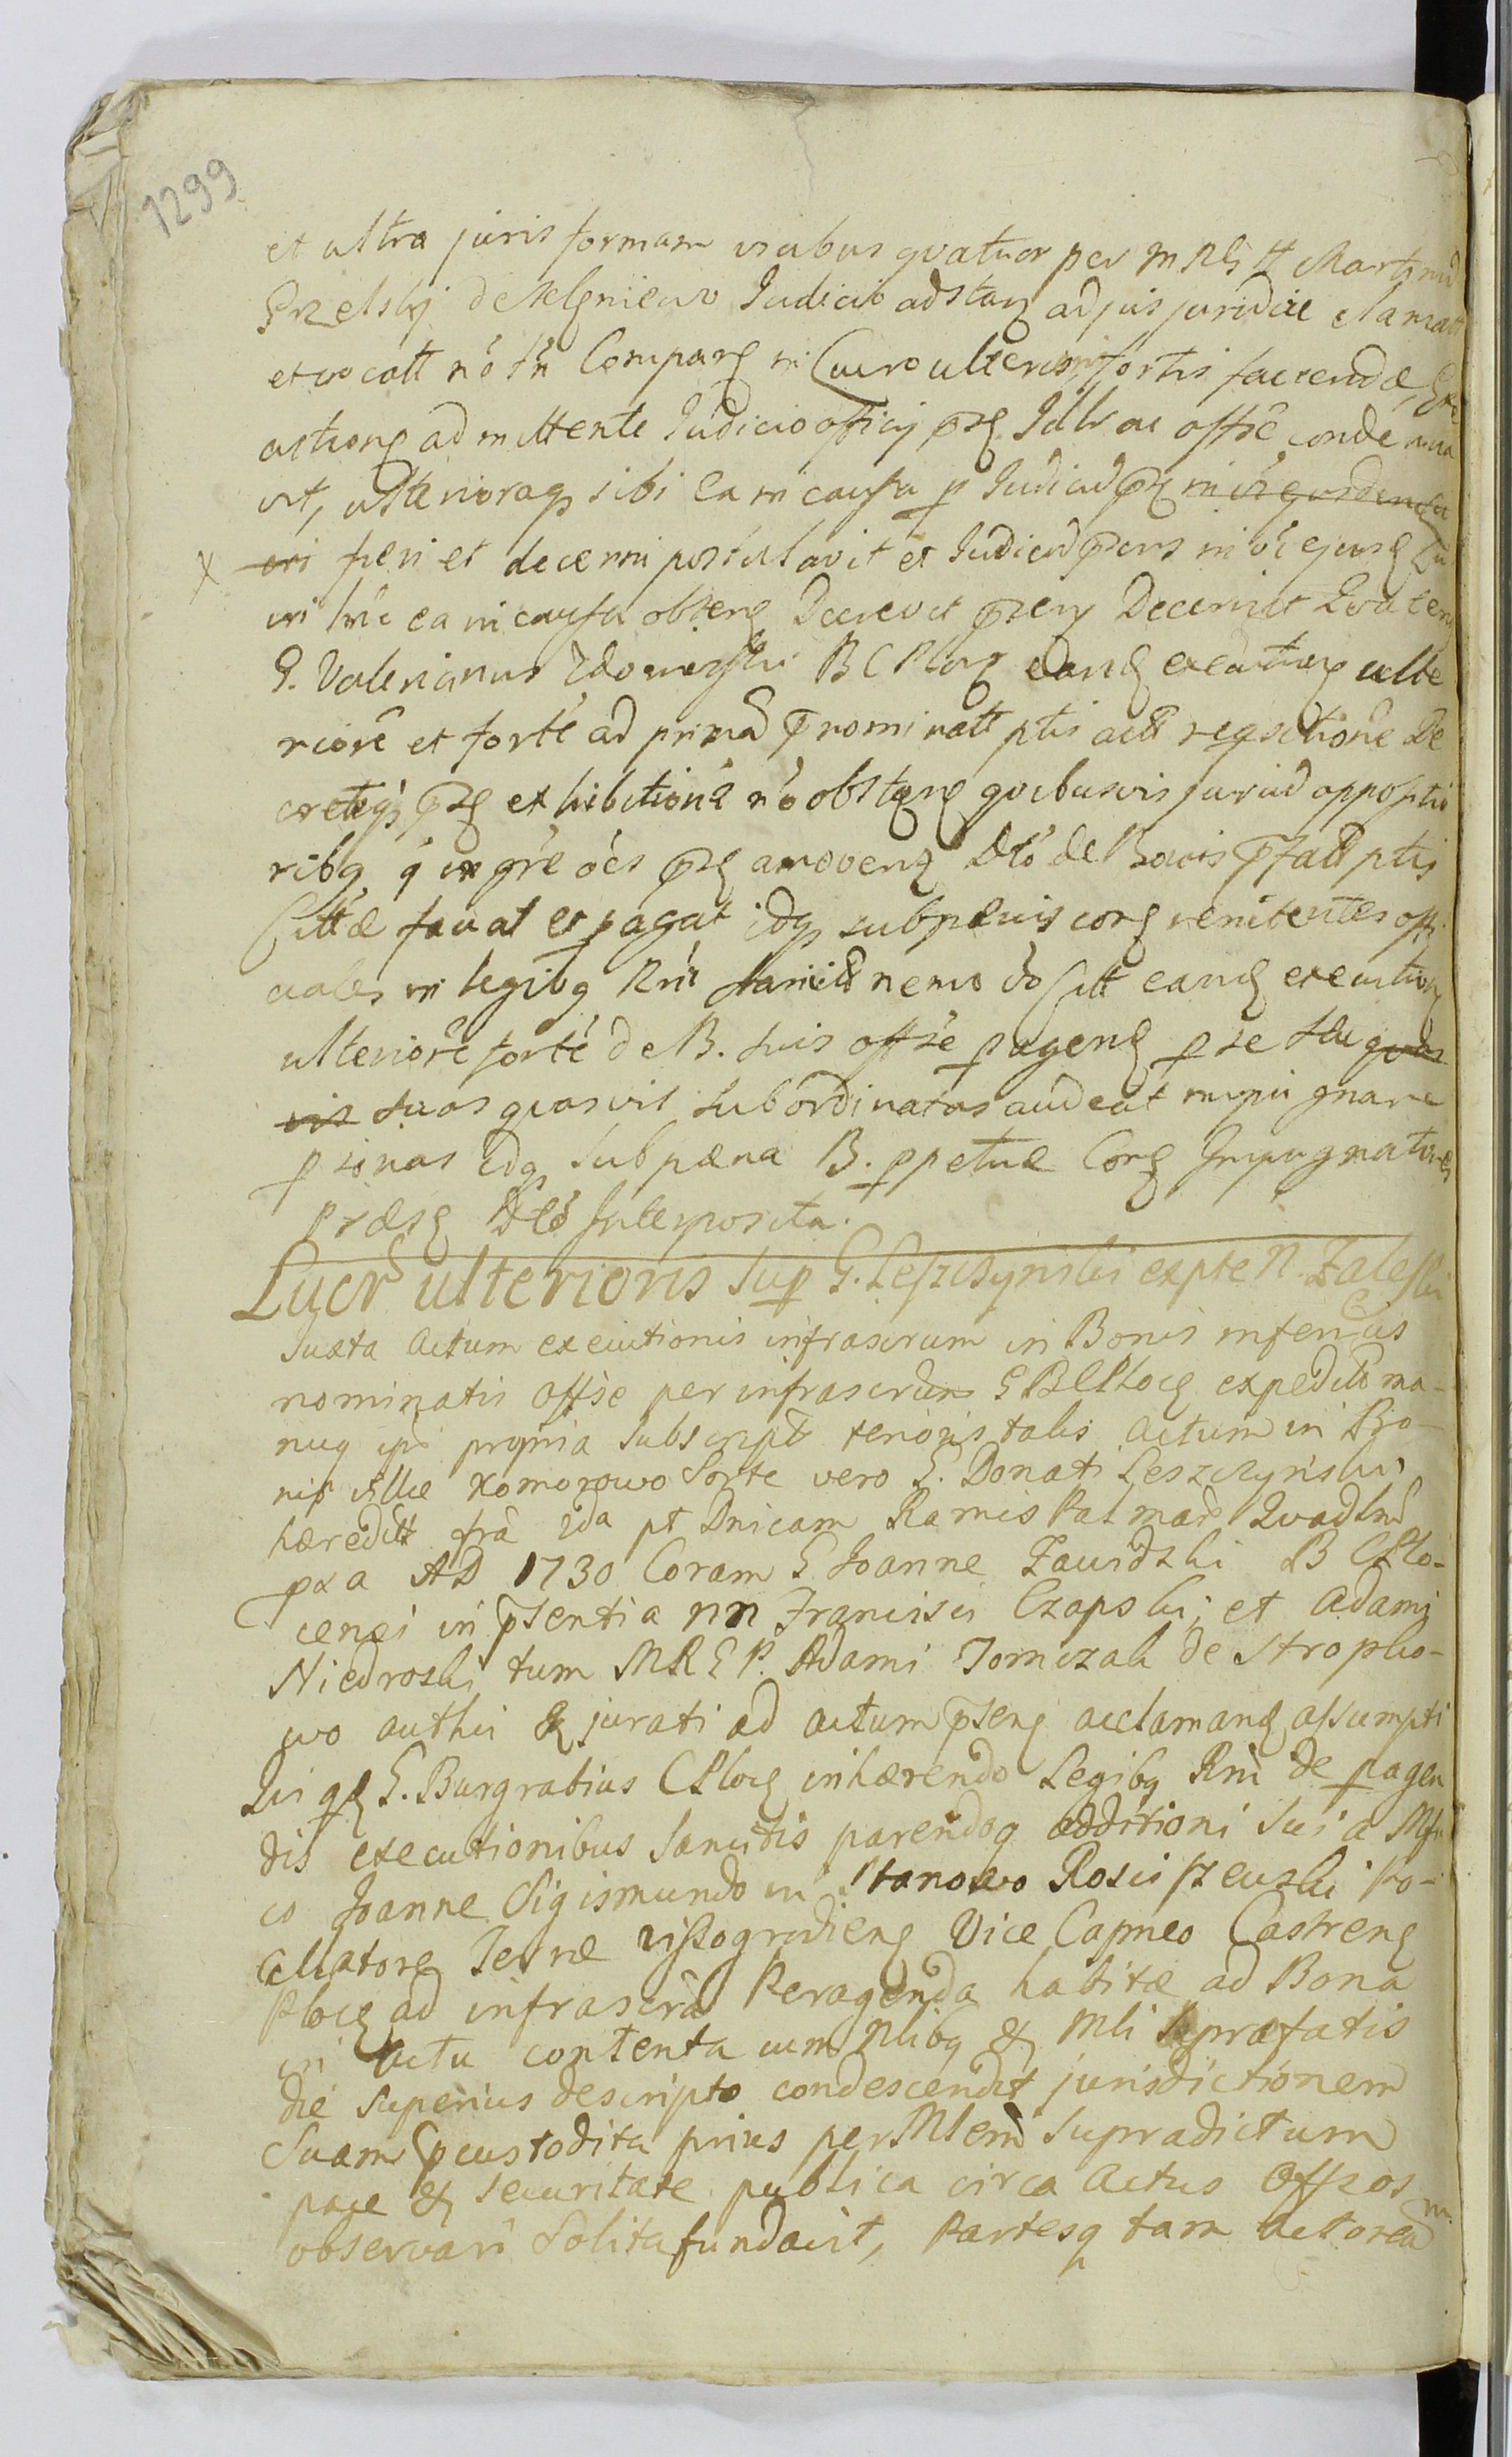 1299
et ultra juris formam vicibus qvatuor per M Rlg tt Martinũ
Przelskj de Kelgniewo Judicio adstan ad jus juridice clamatt
et vocatt nõ tñ Comparẽ in Lucro ulterioris fortis faciendæ,
actione admittente Judicio officij prñ Idlr ac offsẽ condemna
vit, ulterioraq sibi ea in causa p Judiciũ prñ
fieri et decerni postulavit et Judiciũ prns in vi ejusd Lu
cri hñc ea in causa obtenẽ Decrevit prnq Decernit Qvateng
G. Valerianus Zdowieyski B C Plocg eand executiong ulte
riorẽ et fortẽ ad primã prnominatt ptis acts reqsitionẽ De
cretiqꝫ prñ exhibitionẽ nõ obstantg qvibusvis jurid oppositio
ribq q in gñre oẽs prñ amoveng Dto de Bonis prfatt ptis
Citttæ faciat et pagat idqꝫ sub pænis corg renitentes offi
ciales in legibq Rni sancitt nemo vo Citt eand executiong
ulteriorẽ fortẽ de B. suis offsẽ pageng p se seu qvos
vis suos qvosvis subordinatos audeat impugnare
psonas idqꝫ sub pæna B. ppetuæ Corg Impugnatores
præsg Dtõ Interposita.
Lucr ulterioris sup G. Leszczynski ex pte N. Zaleski
Juxta Actum executionis infrascrum in Bonis inferius
nominatis offsẽ per infrascrum G BCPlocg expedito ma-
nuq ipõ propria subscript tenoris talis Actum in Bo-
nis villæ Komorowo Sorte vero G. Donati Leszczynski
hæreditt frã 2da pt Dnicam Ramis Palmar Qvadlmi
pxa AD 1730 Coram G Joanne Zawidzki B CPlo-
censi in prsentia nn Francisci Czapski, et Adami
Niedroski tum MRGP. Adami Tomczak de Stropko-
wo authci & jurati ad actum prseng acclamang assumpti
Qui qd G. Burgrabius CPlocg inhærendo Legibq Rni de pagen
dis executionibus sancitis parendoq additioni sui a Mfi
co Joanne Sigismundo in Stanowo Rosciszewski Po-
cillatore Terræ Vissogradieng Vice Capneo Castreng
Plocg ad infrascrã Peragenda habitæ ad Bona
in Actu contenta cum Nlibq & Mli supræfatis
die superius descripto condescendit jurisdictionem
Suam custodita prius per Mlem supradictum
pace & securitate publica circa Actus Offsos
observari Solita fundavit, Partesq tam Actoream